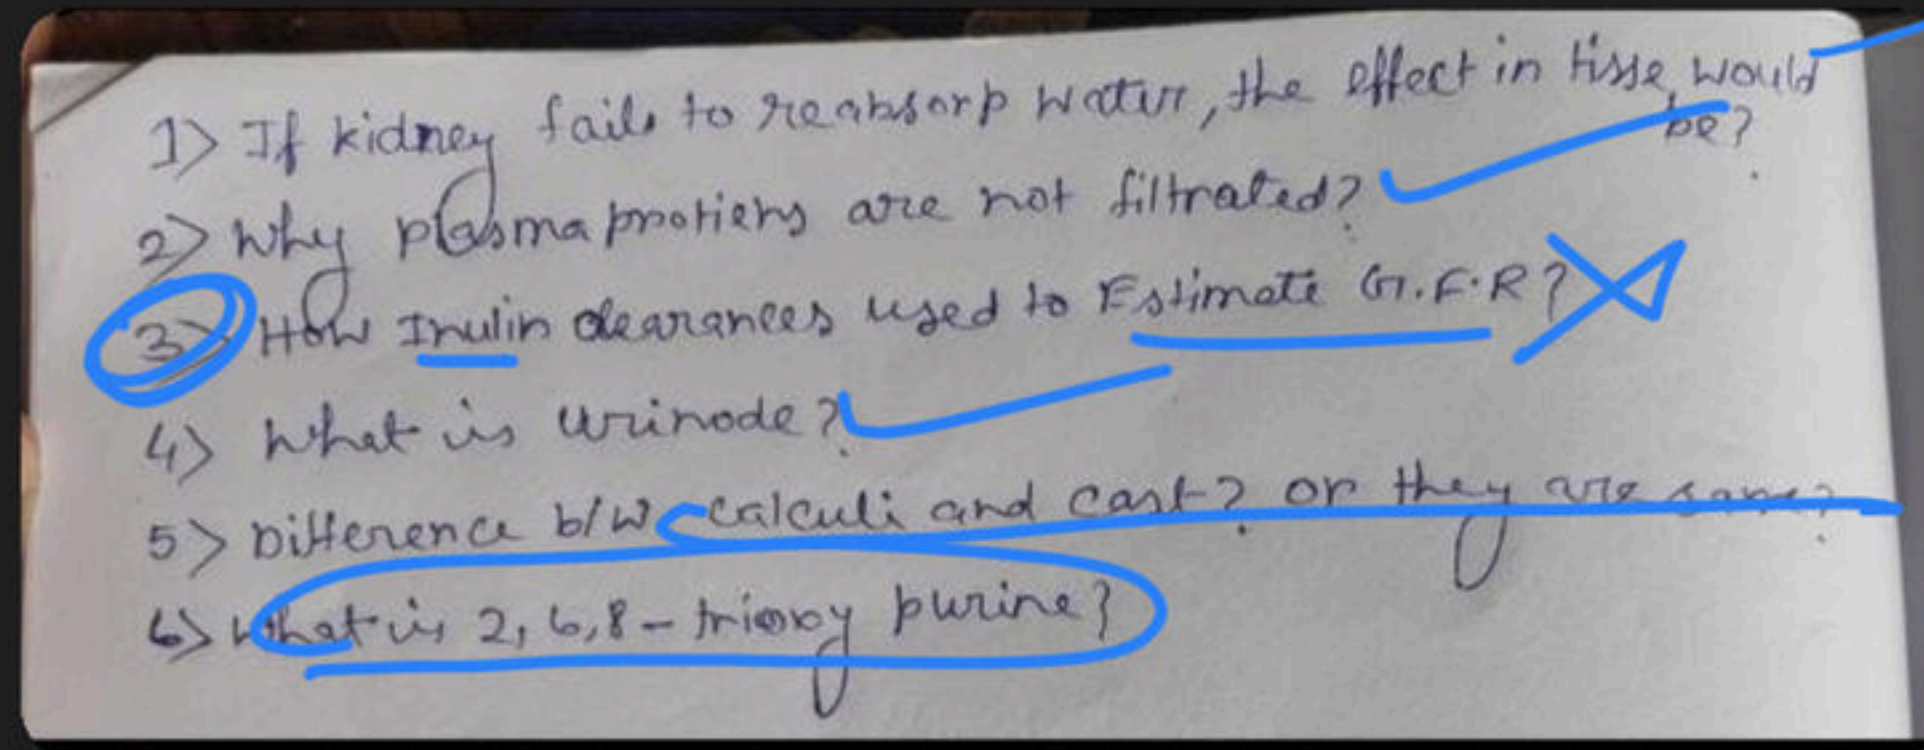 1) If kidney fails to reabsorp water, the effect in tisse would
be?
2) Why plasma protiens are not filtrated?
3) How Inulin clearances used to Estimate G.F.R?
4) What is urinode?
5) Difference b/w calculi and cast? or they are same?
6) What is 2, 6, 8 - trioxy purine?